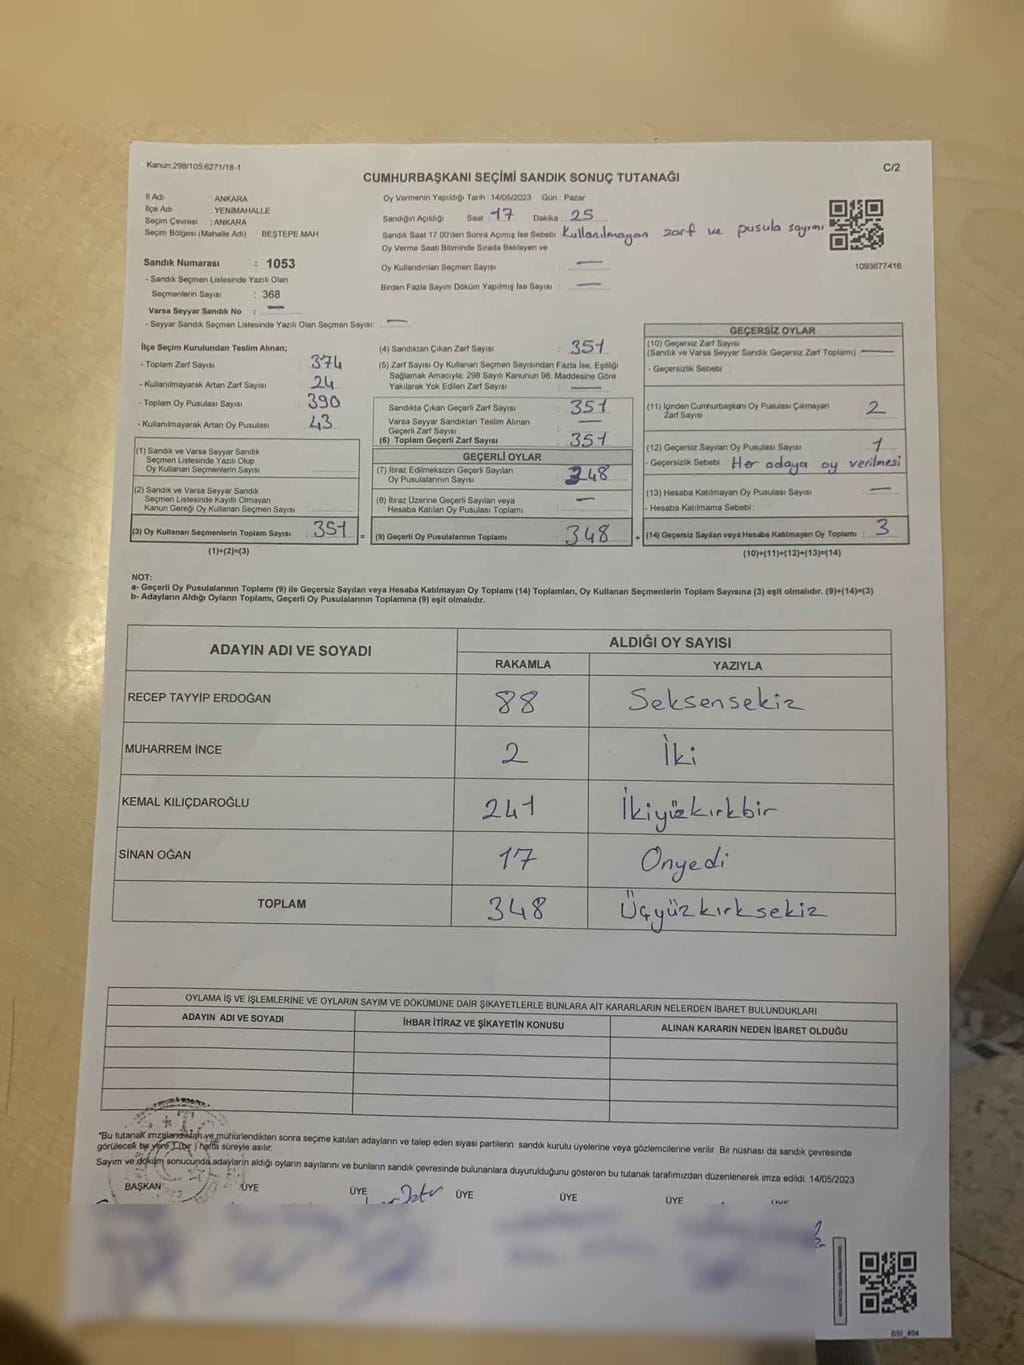 Kanun.298/105.6271/18-1
C/2
CUMHURBAŞKANI SEÇİMİ SANDIK SONUÇ TUTANAĞI
İl Adı : ANKARA
İlçe Adı : YENİMAHALLE
Seçim Çevresi : ANKARA
Seçim Bölgesi (Mahalle Adı) BEŞTEPE MAH.
Oy Vermenin Yapıldığı Tarih : 14/05/2023 Gün : Pazar
Sandığın Açıldığı Saat 17 Dakika : 25
Sandık Saat 17.00'den Sonra Açımış İse Sebebi : Kullanılmayan zarf ve pusula sayımı
Oy Verme Saati Bitiminde Sırada Bekleyen ve
Oy Kullandırılan Seçmen Sayısı : —
Birden Fazla Sayım Döküm Yapılmış İse Sayısı : —
1093677416
Sandık Numarası : 1053
- Sandık Seçmen Listesinde Yazılı Olan
Seçmenlerin Sayısı : 368
Varsa Seyyar Sandık No : —
- Seyyar Sandık Seçmen Listesinde Yazılı Olan Seçmen Sayısı: —
İlçe Seçim Kurulundan Teslim Alınan;
- Toplam Zarf Sayısı : 374
- Kullanılmayarak Artan Zarf Sayısı : 24
- Toplam Oy Pusulası Sayısı : 390
- Kullanılmayarak Artan Oy Pusulası : 43
(1) Sandık ve Varsa Seyyar Sandık
Seçmen Listesinde Yazılı Olup
Oy Kullanan Seçmenlerin Sayısı :
(2) Sandık ve Varsa Seyyar Sandık
Seçmen Listesinde Kayıtlı Olmayan
Kanun Gereği Oy Kullanan Seçmen Sayısı :
(3) Oy Kullanan Seçmenlerin Toplam Sayısı : 351
(1)+(2)=(3)
(4) Sandıktan Çıkan Zarf Sayısı : 351
(5) Zarf Sayısı Oy Kullanan Seçmen Sayısından Fazla İse, Eşitliği
Sağlamak Amacıyla; 298 Sayılı Kanunun 98. Maddesine Göre
Yakılarak Yok Edilen Zarf Sayısı : —
Sandıkta Çıkan Geçerli Zarf Sayısı : 351
Varsa Seyyar Sandıktan Teslim Alınan
Geçerli Zarf Sayısı : —
(6) Toplam Geçerli Zarf Sayısı : 351
GEÇERLİ OYLAR
(7) İtiraz Edilmeksizin Geçerli Sayılan
Oy Pusulalarının Sayısı : 348
(8) İtiraz Üzerine Geçerli Sayılan veya
Hesaba Katılan Oy Pusulası Toplamı : —
= (9) Geçerli Oy Pusulalarının Toplamı : 348
GEÇERSİZ OYLAR
(10) Geçersiz Zarf Sayısı
(Sandık ve Varsa Seyyar Sandık Geçersiz Zarf Toplamı) : —
- Geçersizlik Sebebi :
(11) İçinden Cumhurbaşkanı Oy Pusulası Çıkmayan
Zarf Sayısı : 2
(12) Geçersiz Sayılan Oy Pusulası Sayısı : 1
- Geçersizlik Sebebi : Her adaya oy verilmesi
(13) Hesaba Katılmayan Oy Pusulası Sayısı : —
- Hesaba Katılmama Sebebi :
+ (14) Geçersiz Sayılan veya Hesaba Katılmayan Oy Toplamı : 3
(10)+(11)+(12)+(13)=(14)
NOT:
a- Geçerli Oy Pusulalarının Toplamı (9) ile Geçersiz Sayılan veya Hesaba Katılmayan Oy Toplamı (14) Toplamları, Oy Kullanan Seçmenlerin Toplam Sayısına (3) eşit olmalıdır. (9)+(14)=(3)
b- Adayların Aldığı Oyların Toplamı, Geçerli Oy Pusulalarının Toplamına (9) eşit olmalıdır.
ADAYIN ADI VE SOYADI
ALDIĞI OY SAYISI
RAKAMLA YAZIYLA
RECEP TAYYİP ERDOĞAN 88 Seksensekiz
MUHARREM İNCE 2 İki
KEMAL KILIÇDAROĞLU 241 İkiyüzkırkbir
SİNAN OĞAN 17 Onyedi
TOPLAM 348 Üçyüzkırksekiz
OYLAMA İŞ VE İŞLEMLERİNE VE OYLARIN SAYIM VE DÖKÜMÜNE DAİR ŞİKAYETLERLE BUNLARA AİT KARARLARIN NELERDEN İBARET BULUNDUKLARI
ADAYIN ADI VE SOYADI İHBAR İTİRAZ VE ŞİKAYETİN KONUSU ALINAN KARARIN NEDEN İBARET OLDUĞU
*Bu tutanak imzalandıktan ve mühürlendikten sonra seçime katılan adayların ve talep eden siyasi partilerin sandık kurulu üyelerine veya gözlemcilerine verilir. Bir nüshası da sandık çevresinde
görülecek bir yere 1 (bir) hafta süreyle asılır.
Sayım ve döküm sonucunda adayların aldığı oyların sayılarını ve bunların sandık çevresinde bulunanlara duyurulduğunu gösteren bu tutanak tarafımızdan düzenlenerek imza edildi. 14/05/2023
BAŞKAN ÜYE ÜYE ÜYE ÜYE ÜYE ÜYE
SSI_404